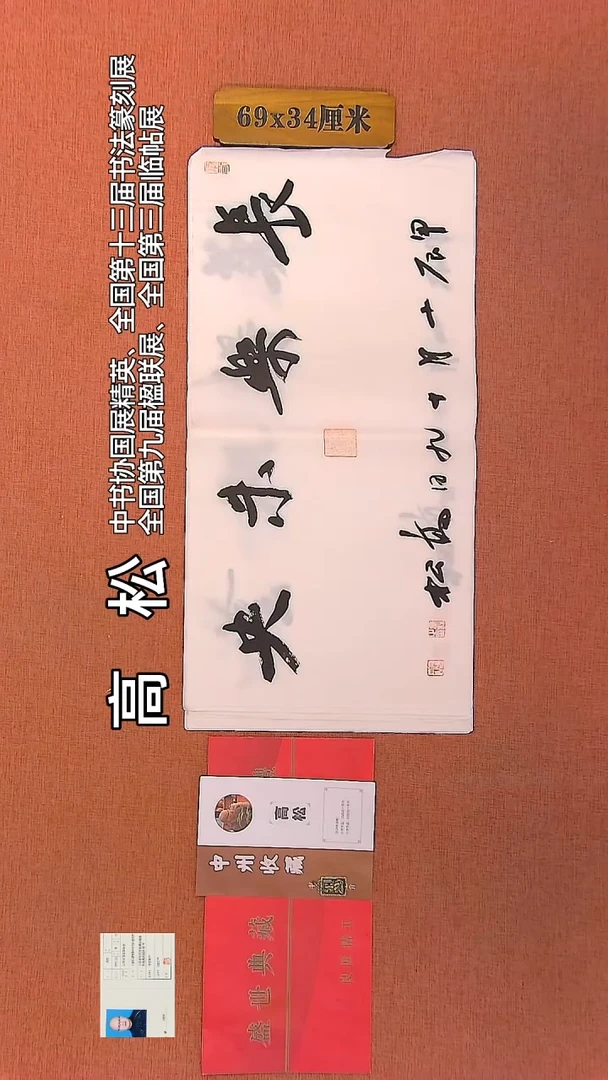 69x34厘米
高 松
中书协国展精英、全国第十三届书法篆刻展
全国第九届楹联展、全国第三届临帖展
長樂未央
甲辰十月十九日高松
高松
中州收藏
盛世典藏